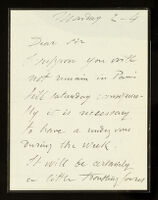 Monday 2-4
Dear Sir
I suppose you will
not remain in Paris
till saturday consequen-
tly it is necessary
to have a rendez vous
during the week.
It will be certainly
a little